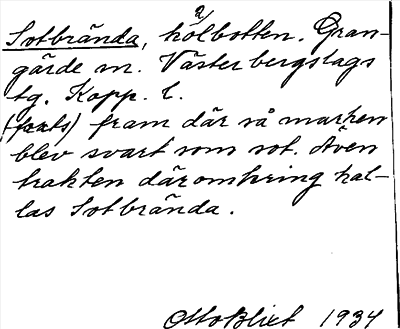 Sotbrända, kölbotten. Gran-
gärde sn. Västerbergslags
tg. Kopp. l.
fram där så marken
blev svart som sot. Även
trakten däromkring kal-
las Sotbrända.
Otto Blixt 1934